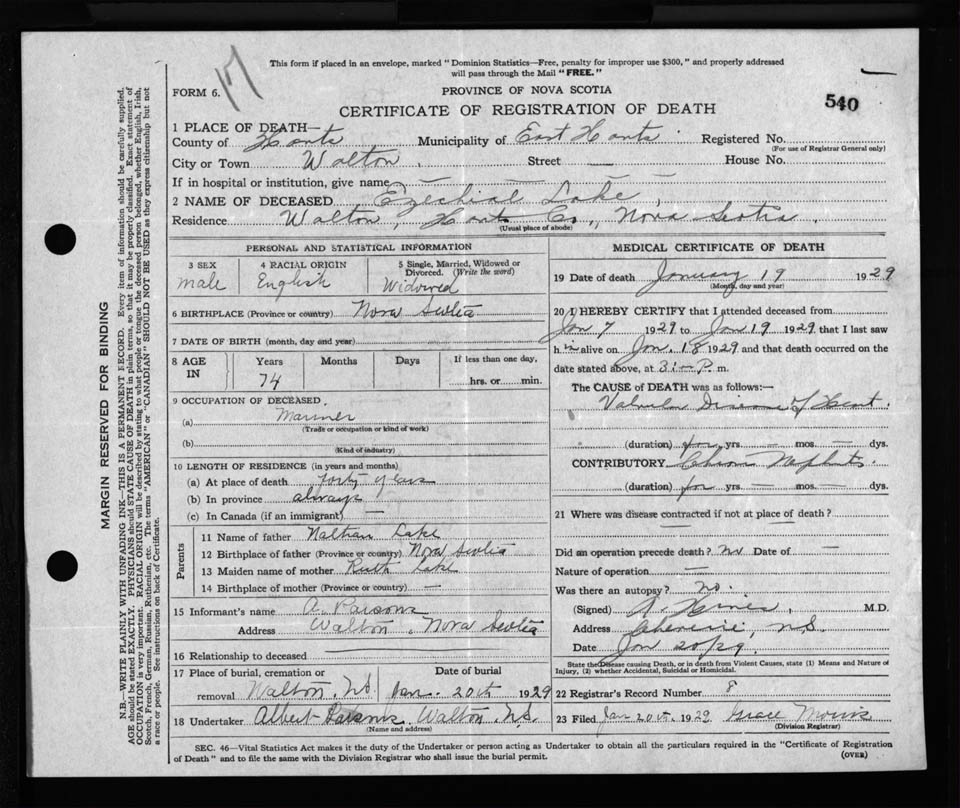 17
This form if placed in an envelope, marked "Dominion Statistics—Free, penalty for improper use $300," and properly addressed
will pass through the Mail "FREE."
FORM 6.
PROVINCE OF NOVA SCOTIA
CERTIFICATE OF REGISTRATION OF DEATH
540
1 PLACE OF DEATH—
County of Hants Municipality of East Hants Registered No.
(For use of Registrar General only)
City or Town Walton Street — House No.
If in hospital or institution, give name — — — —
2 NAME OF DECEASED Ezechial Lake
Residence Walton, Hants Co., Nova Scotia.
(Usual place of abode)
PERSONAL AND STATISTICAL INFORMATION
3 SEX 4 RACIAL ORIGIN 5 Single, Married, Widowed or
Divorced. (Write the word)
male English Widowed
6 BIRTHPLACE (Province or country) Nova Scotia
7 DATE OF BIRTH (month, day and year)
8 AGE IN Years Months Days If less than one day,
74 hrs. or min.
9 OCCUPATION OF DECEASED
(a) Mariner
(Trade or occupation or kind of work)
(b)
(Kind of industry)
10 LENGTH OF RESIDENCE (in years and months)
(a) At place of death forty years
(b) In province always
(c) In Canada (if an immigrant) —
Parents
11 Name of father Nathan Lake
12 Birthplace of father (Province or country) Nova Scotia
13 Maiden name of mother Ruth Lake
14 Birthplace of mother (Province or country) —
15 Informant's name A. Parsons
Address Walton, Nova Scotia
16 Relationship to deceased —
17 Place of burial, cremation or Date of burial
removal Walton, N.S. Jan. 20th 1929
18 Undertaker Albert Parsons, Walton, N.S.
(Name and address)
MEDICAL CERTIFICATE OF DEATH
19 Date of death January 19 1929
(Month, day and year)
20 I HEREBY CERTIFY that I attended deceased from
Jan 7 1929 to Jan 19 1929 that I last saw
him alive on Jan. 18 1929 and that death occurred on the
date stated above, at 3:— P. m.
The CAUSE of DEATH was as follows:—
Valvular Disease of Heart.
(duration) for yrs — mos — dys.
CONTRIBUTORY Chronic Nephritis.
(duration) for yrs — mos — dys.
21 Where was disease contracted if not at place of death?
Did an operation precede death? no Date of —
Nature of operation —
Was there an autopsy? no.
(Signed) M.D.
Address Cheverie, N.S.
Date Jan 20/29.
State the Disease causing Death, or in death from Violent Causes, state (1) Means and Nature of
Injury, (2) whether Accidental, Suicidal or Homicidal.
22 Registrar's Record Number 8
23 Filed Jan 20th, 1929 Grace Morris
(Division Registrar)
SEC. 46—Vital Statistics Act makes it the duty of the Undertaker or person acting as Undertaker to obtain all the particulars required in the "Certificate of Registration
of Death" and to file the same with the Division Registrar who shall issue the burial permit.
(OVER)
MARGIN RESERVED FOR BINDING
N.B.—WRITE PLAINLY WITH UNFADING INK—THIS IS A PERMANENT RECORD. Every item of information should be carefully supplied.
AGE should be stated EXACTLY. PHYSICIANS should STATE CAUSE OF DEATH in plain terms, so that it may be properly classified. Exact statement of
OCCUPATION is very important. RACIAL ORIGIN will be described by stating to what people or tongue the deceased person belonged, whether English, Irish,
Scotch, French, German, Russian, Ruthenian, etc. The terms "AMERICAN" or "CANADIAN" SHOULD NOT BE USED as they express citizenship but not
a race or people. See instructions on back of Certificate.